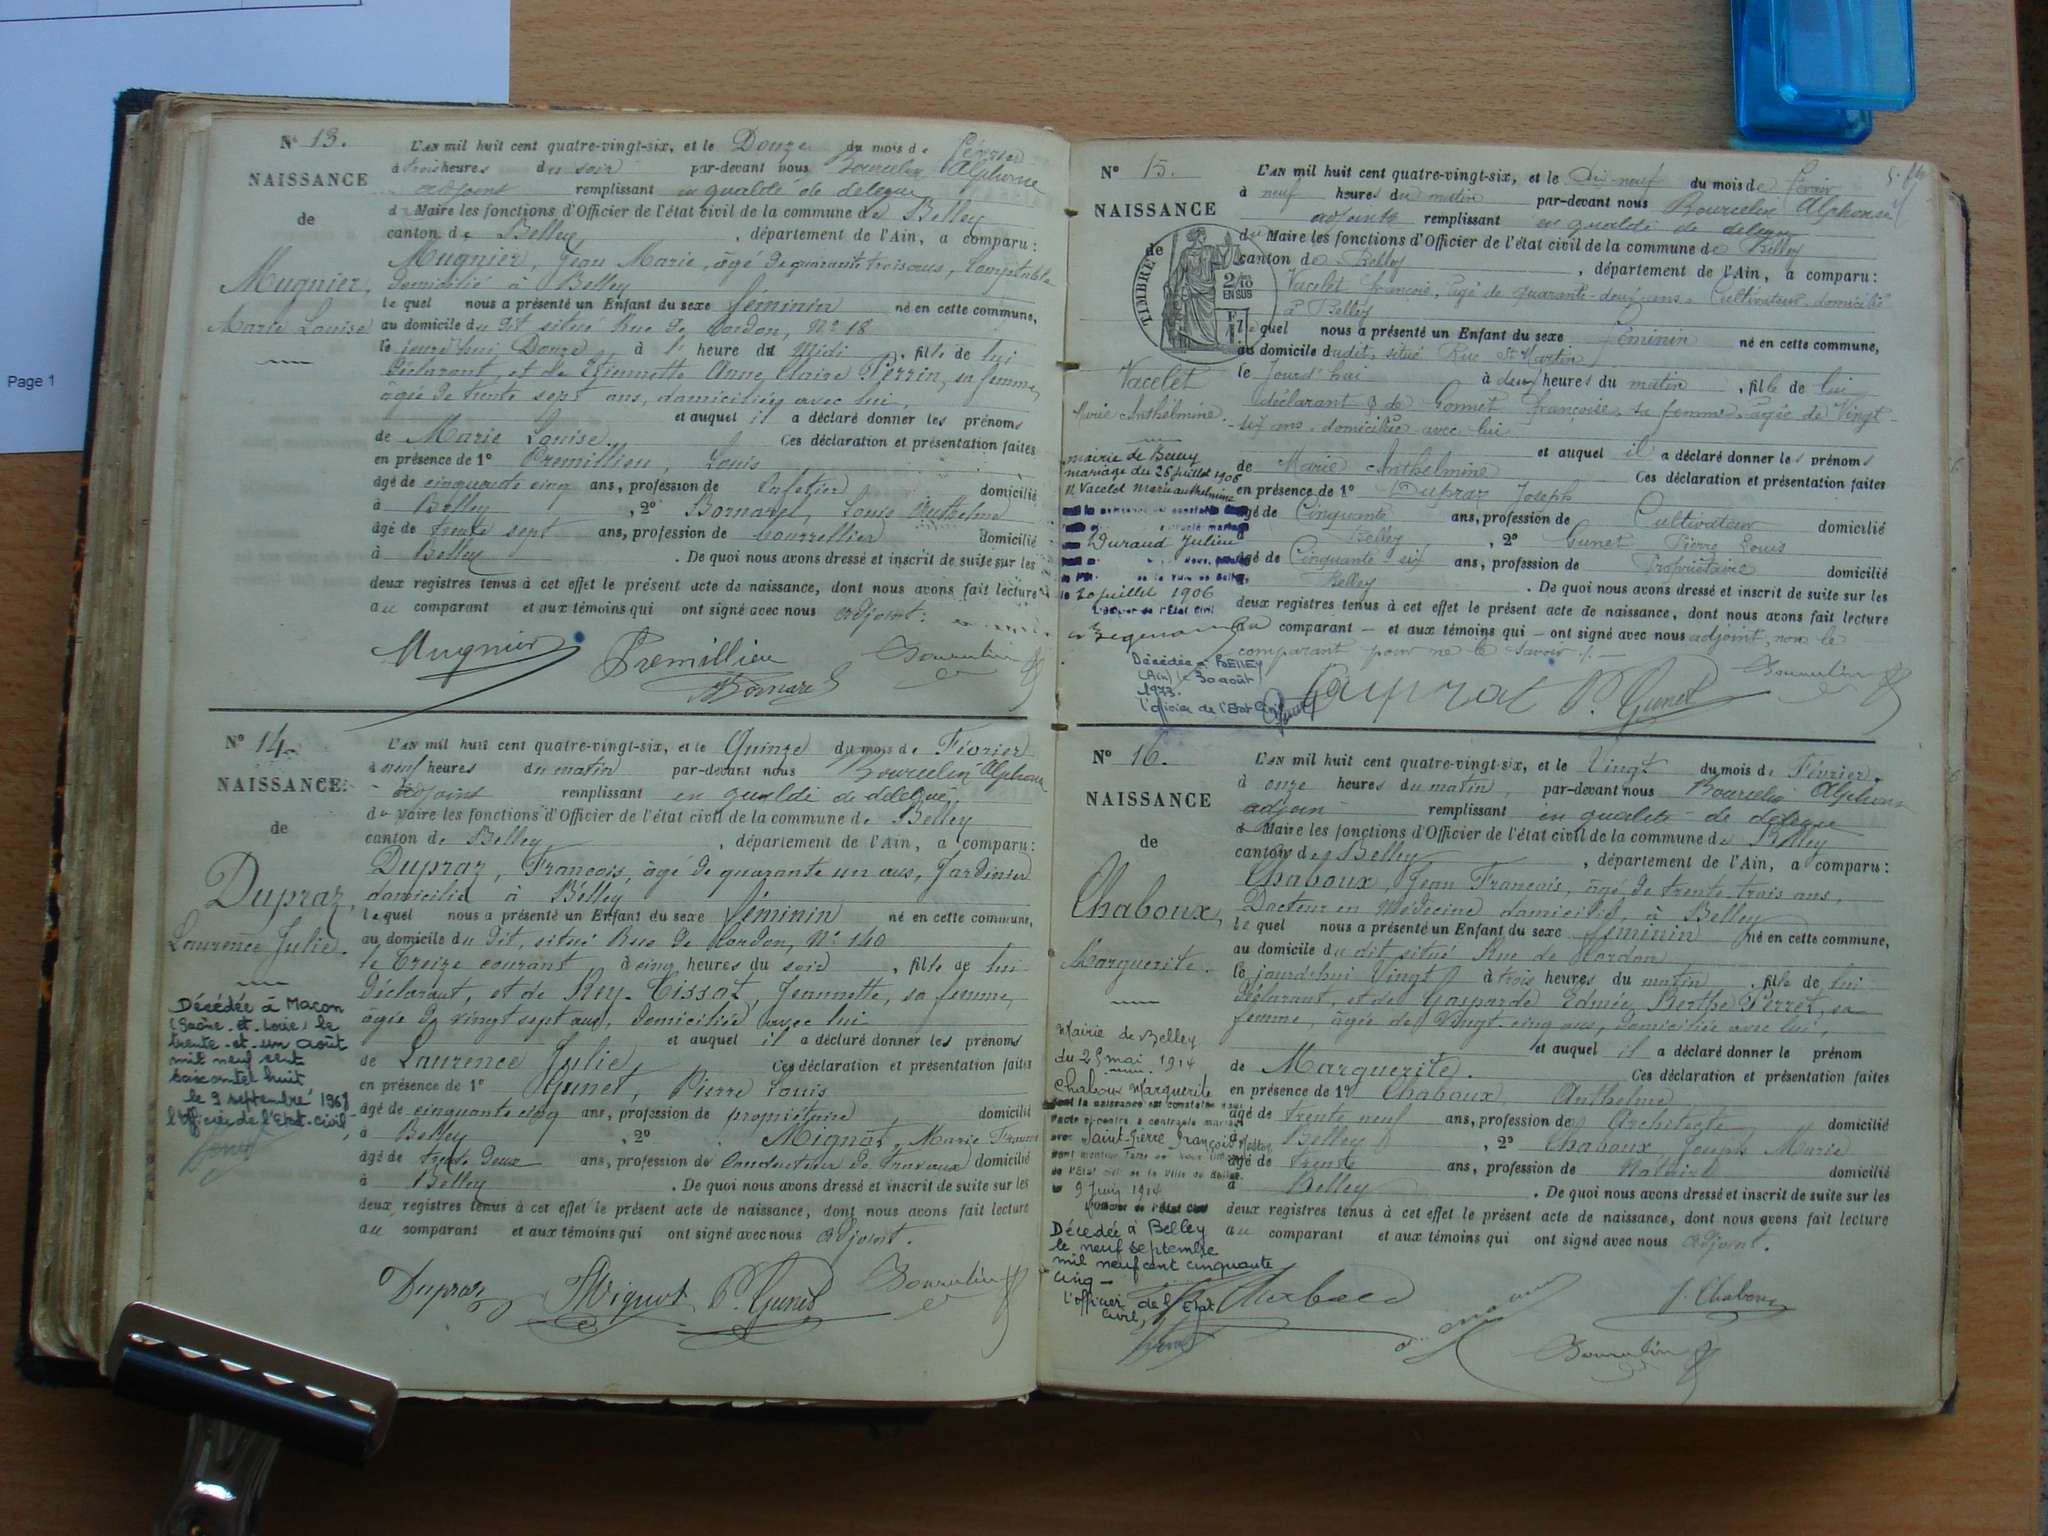 Page 1
N° 13.
NAISSANCE
de
Mugnier,
Marie Louise
L'AN mil huit cent quatre-vingt-six, et le Douze du mois de Février
à trois heures du soir par-devant nous Bourcelin Alphonse
adjoint remplissant en qualité de délégué
d Maire les fonctions d'Officier de l'état civil de la commune de Belley
canton de Belley, département de l'Ain, a comparu :
Mugnier, Jean Marie, âgé de quarante trois ans, Comptable
domicilié à Belley
lequel nous a présenté un Enfant du sexe féminin né en cette commune,
au domicile du dit situé Rue de Cordon, N° 18
le jourd'hui Douze à heure du Midi, fille de lui
Déclarant, et de Etiennette Anne Claire Perrin, sa femme,
âgée de trente sept ans, domiciliée avec lui,
et auquel il a déclaré donner les prénoms
de Marie Louise. Ces déclaration et présentation faites
en présence de 1° Premillieu, Louis
âgé de cinquante cinq ans, profession de Cafetier domicilié
à Belley, 2° Bornarel, Louis Anthelme
âgé de trente sept ans, profession de bourrellier domicilié
à Belley. De quoi nous avons dressé et inscrit de suite sur les
deux registres tenus à cet effet le présent acte de naissance, dont nous avons fait lecture
au comparant et aux témoins qui ont signé avec nous adjoint.
Mugnier Premillieu Bourcelin
Bornarel
N° 14.
NAISSANCE
de
Dupraz,
Laurence Julie.
Décédée à Macon
(Saône-et-Loire) le
trente-et-un août
mil neuf cent
soixante huit
le 9 septembre 1968
l'officier de l'Etat-civil
L'AN mil huit cent quatre-vingt-six, et le Quinze du mois de Février
à neuf heures du matin par-devant nous Bourcelin Alphonse
adjoint remplissant en qualité de délégué
du Maire les fonctions d'Officier de l'état civil de la commune de Belley
canton de Belley, département de l'Ain, a comparu :
Dupraz, François, âgé de quarante un ans, Jardinier
domicilié à Belley
lequel nous a présenté un Enfant du sexe féminin né en cette commune,
au domicile du dit, situé Rue de Cordon, N° 140
le Treize courant à cinq heures du soir, fille de lui
Déclarant, et de Rey-Tissot, Jeannette, sa femme,
âgée de vingt sept ans, domiciliée avec lui
et auquel il a déclaré donner les prénoms
de Laurence Julie Ces déclaration et présentation faites
en présence de 1° Gunet, Pierre Louis
âgé de cinquante cinq ans, profession de propriétaire domicilié
à Belley, 2° Mignot, Marie
âgé de trente deux ans, profession de Conducteur de travaux domicilié
à Belley. De quoi nous avons dressé et inscrit de suite sur les
deux registres tenus à cet effet le présent acte de naissance, dont nous avons fait lecture
au comparant et aux témoins qui ont signé avec nous adjoint.
Dupraz Mignot P. Gunet Bourcelin
N° 15.
NAISSANCE
de
TIMBRE
2/10
EN SUS
Vacelet
Marie Anthelmine.
mairie de Belley
mariage du 26 juillet 1906
Vacelet Marie anthelmine
Durand Julien
de la Ville de Belley
le 20 juillet 1906
L'Officier de l'Etat Civil
Décédée à BELLEY
(Ain) le 30 août
1973.
l'officier de l'Etat Civil
L'AN mil huit cent quatre-vingt-six, et le Dix-neuf du mois de Février
à neuf heures du matin par-devant nous Bourcelin Alphonse
adjoint remplissant en qualité de délégué
du Maire les fonctions d'Officier de l'état civil de la commune de Belley
canton de Belley, département de l'Ain, a comparu :
Vacelet François, âgé de quarante-deux ans, Cultivateur domicilié
à Belley
lequel nous a présenté un Enfant du sexe féminin né en cette commune,
au domicile dudit, situé Rue St Martin
le Jourd'hui à deux heures du matin, fille de lui
déclarant & de Gonnet Françoise, sa femme, âgée de Vingt-
six ans, domiciliée avec lui
et auquel il a déclaré donner les prénoms
de Marie Anthelmine Ces déclaration et présentation faites
en présence de 1° Dupraz Joseph
âgé de Cinquante ans, profession de Cultivateur domicilié
Belley, 2° Gunet Pierre Louis
âgé de Cinquante-six ans, profession de Propriétaire domicilié
Belley. De quoi nous avons dressé et inscrit de suite sur les
deux registres tenus à cet effet le présent acte de naissance, dont nous avons fait lecture
au comparant – et aux témoins qui – ont signé avec nous adjoint, non le
comparant pour ne le savoir ./.
Dupraz P. Gunet Bourcelin
N° 16.
NAISSANCE
de
Chaboux,
Marguerite.
Mairie de Belley
du 25 mai 1914
Chaboux Marguerite
dont la naissance est constatée
l'acte ci-contre a contracté mariage
avec Saint-Pierre François
de l'Etat civil de la Ville de Belley.
le 9 Juin 1914
L'Officier de l'Etat Civil
Décédée à Belley
le neuf septembre
mil neuf cent cinquante
cinq –
l'officier de l'Etat
Civil,
L'AN mil huit cent quatre-vingt-six, et le Vingt du mois de Février.
à onze heures du matin, par-devant nous Bourcelin Alphonse
adjoin remplissant en qualité de délégué
d Maire les fonctions d'Officier de l'état civil de la commune de Belley
canton de Belley, département de l'Ain, a comparu :
Chaboux, Jean François, âgé de trente-trois ans,
Docteur en Médecine domicilié, à Belley
lequel nous a présenté un Enfant du sexe féminin né en cette commune,
au domicile du dit situé Rue de Cordon
le jourd'hui Vingt à trois heures du matin, fille de lui
Déclarant, et de Gasparde Edmée Berthe Perret, sa
femme, âgée de Vingt-cinq ans, domiciliée avec lui,
et auquel il a déclaré donner le prénom
de Marguerite. Ces déclaration et présentation faites
en présence de 1° Chaboux, Anthelme
âgé de trente neuf ans, profession de Architecte, domicilié
à Belley, 2° Chaboux, Joseph Marie
âgé de trente ans, profession de Notaire domicilié
à Belley. De quoi nous avons dressé et inscrit de suite sur les
deux registres tenus à cet effet le présent acte de naissance, dont nous avons fait lecture
au comparant et aux témoins qui ont signé avec nous adjoint.
J. Chaboux
Bourcelin